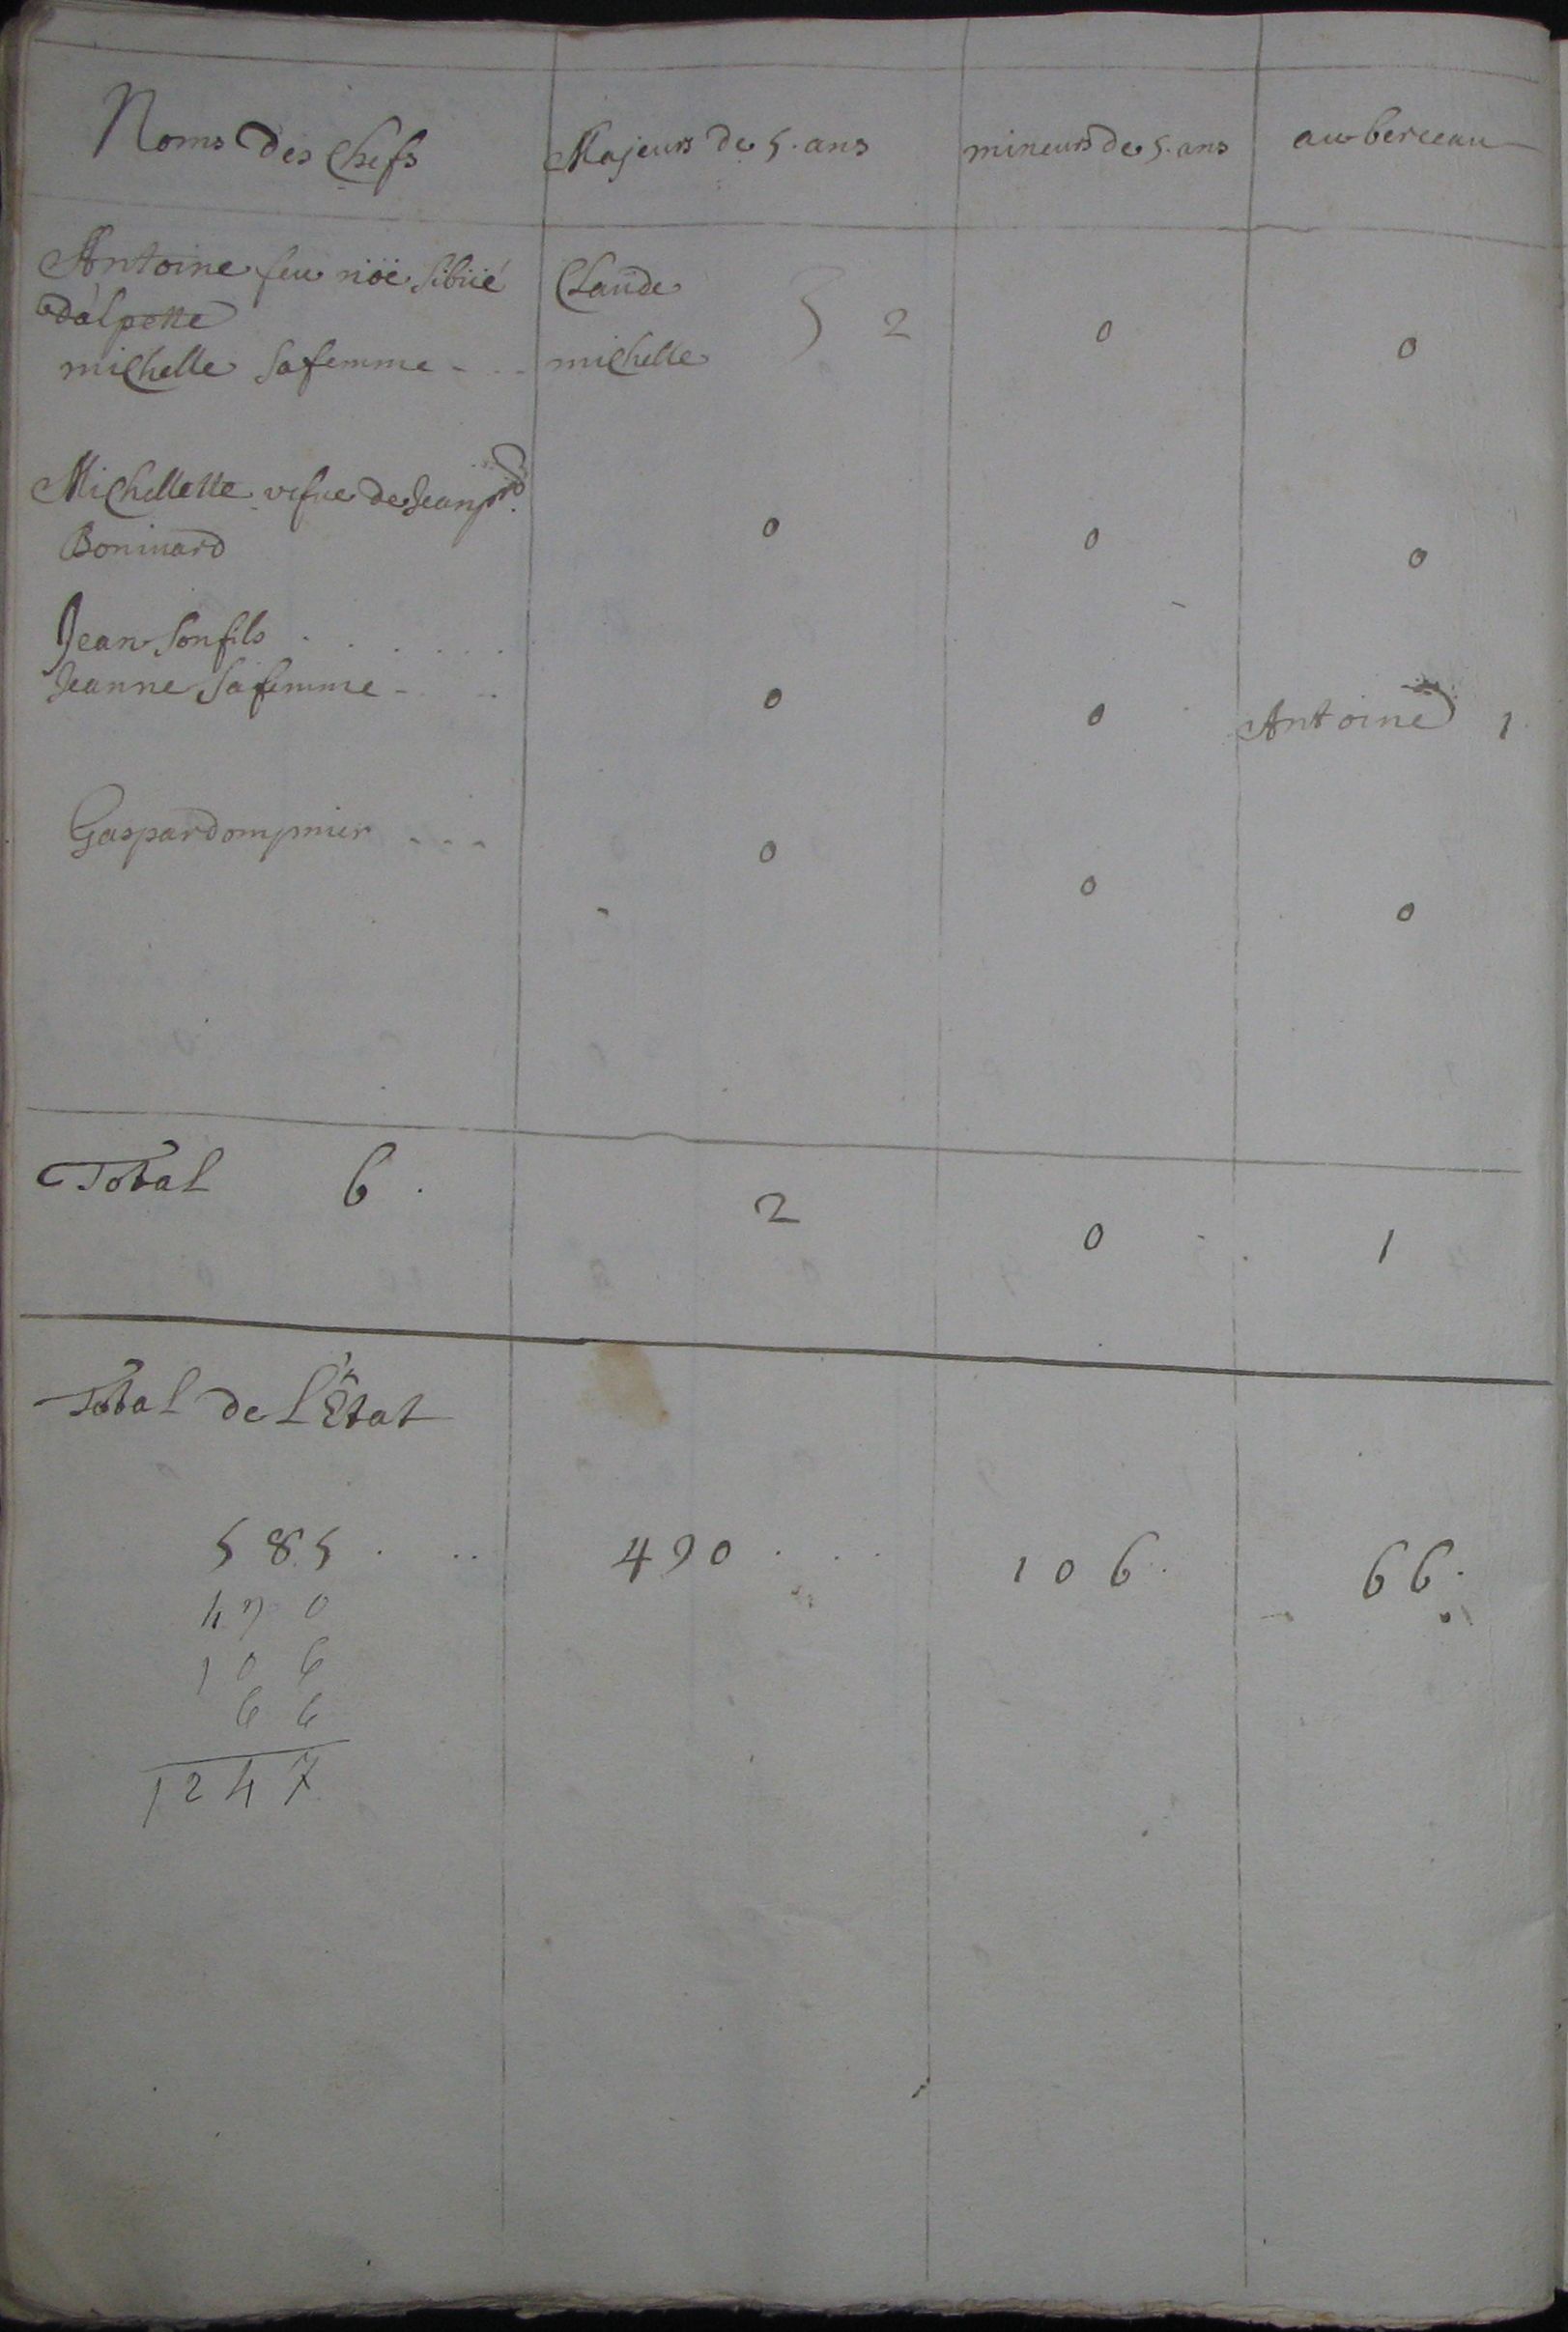 Noms des Chefs Majeurs de 5. ans mineurs de 5. ans au berceau
Antoine feu nöe Sibüé Claude
dalpette 2 0 0
michelle sa femme - - - michelle
Michellette vefue de Jean
Boninard 0 0 0
Jean son fils . . . . . .
Jeanne sa femme - - 0 0 Antoine 1
Gaspardompnier - - - 0 0 0
Total 6 . 2 0 1
Total de l'Etat
585 . . . 490 . . . 106 . 66 .
490
106
66
1247